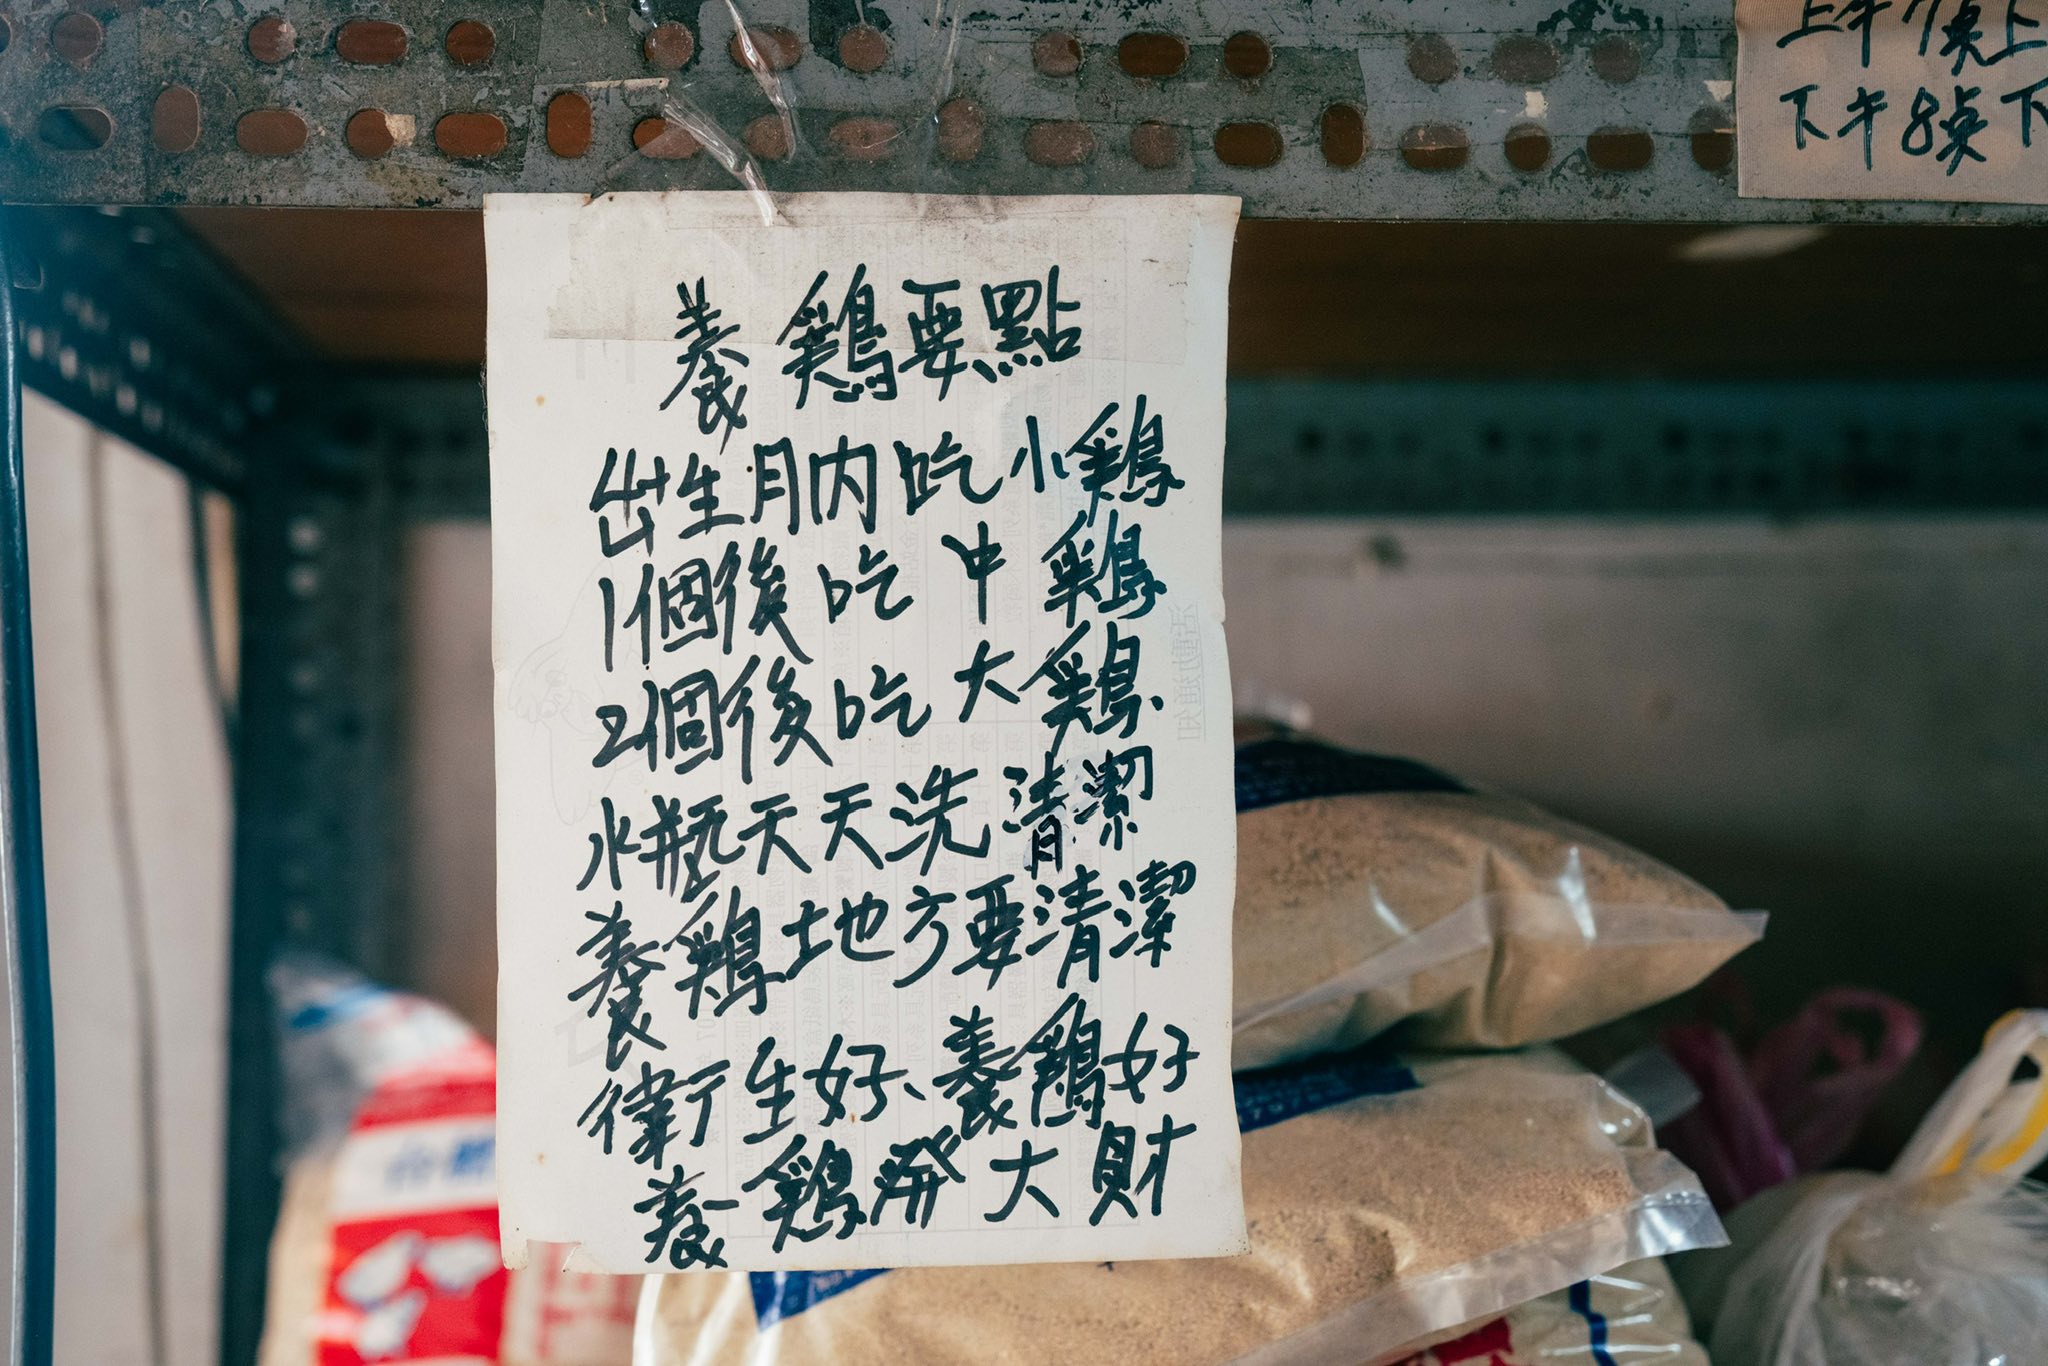 養鷄要點
出生月內吃小鷄
1個後吃中鷄
2個後吃大鷄
水瓶天天洗清潔
養鷄地方要清潔
衛生好、養鷄好
養鷄發大財
上午7桌上
下午8桌下